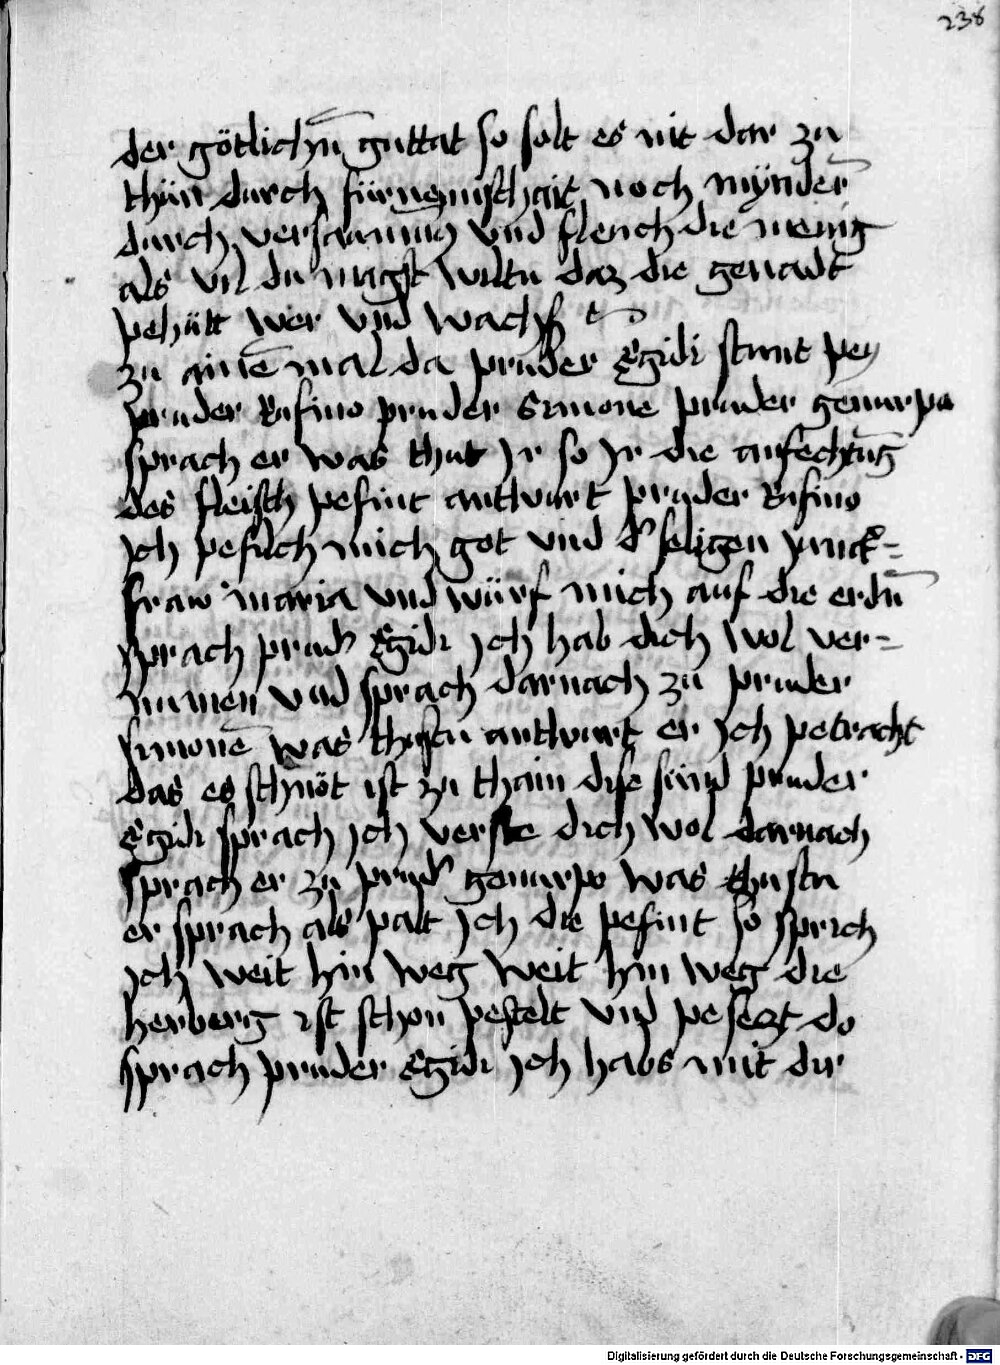 238
der götlichn̄ guttat so solt es nit dar zu
thün durch fürnemischait noch mynder̄
durch versaumng vnd fleuch die menig
als vil du magst wiltu daz die genadt
pehütt wer vnd wachs t
zu ainē mal da pruder Egidi stunt pey
pruder Rufino pruder Simone pruder genurpo
sprach er was thut Ir so Ir die anfechtūg
des fleisch pefint antwurt pruder Rufino
Ich pefilch mich got vnd d' seligen Junck=
fraw maria vnd würf mich auf die erdn̄
sprach prud' Egidi Ich hab dich wol ver=
numen vnd sprach darnach zu pruder
simonē was thustu antwurt er Ich petracht
das es schnöt ist zu thain dise sünd pruder
Egidi sprach Ich verste dich wol darnach
sprach er zu prud' genurpo was thustu
er sprach als palt Ich die pefint so sprich
Ich weit hin weg weit hin weg die
herberg ist schon pestelt vnd pesetzt do
sprach pruder Egidi Ich habs mit dir
Digitalisierung gefördert durch die Deutsche Forschungsgemeinschaft - DFG